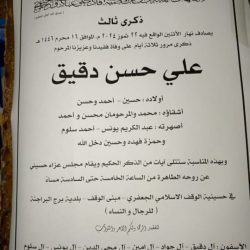 ذكرى ثالث
يصادف نهار الأثنين الواقع فيه ٢٢ تموز ٢٠٢٤ م الموافق ١٦ محرم ١٤٤٦ هـ
ذكرى مرور ثلاثة أيام على وفاة فقيدنا وعزيزنا المرحوم
علي حسن دقيق
أولاده : حسين - أحمد وحسن
أشقاؤه : محمد والمرحومان محسن و أحمد
أصهرته : عبد الكريم يونس - أحمد سلوم
وحمزة فهده وحسين دخل الله
وبهذه المناسبة ستتلى آيات من الذكر الحكيم ويقام مجلس عزاء حسيني
عن روحه الطاهرة من الساعة الخامسة حتى السادسة مساءً
في حسينية الوقف الاسلامي الجعفري - مبنى الوقف - بلدية برج البراجنة
( للرجال و النساء )
الآسفون : آل دقيق - آل جواد - آل يونس - آل سلوم